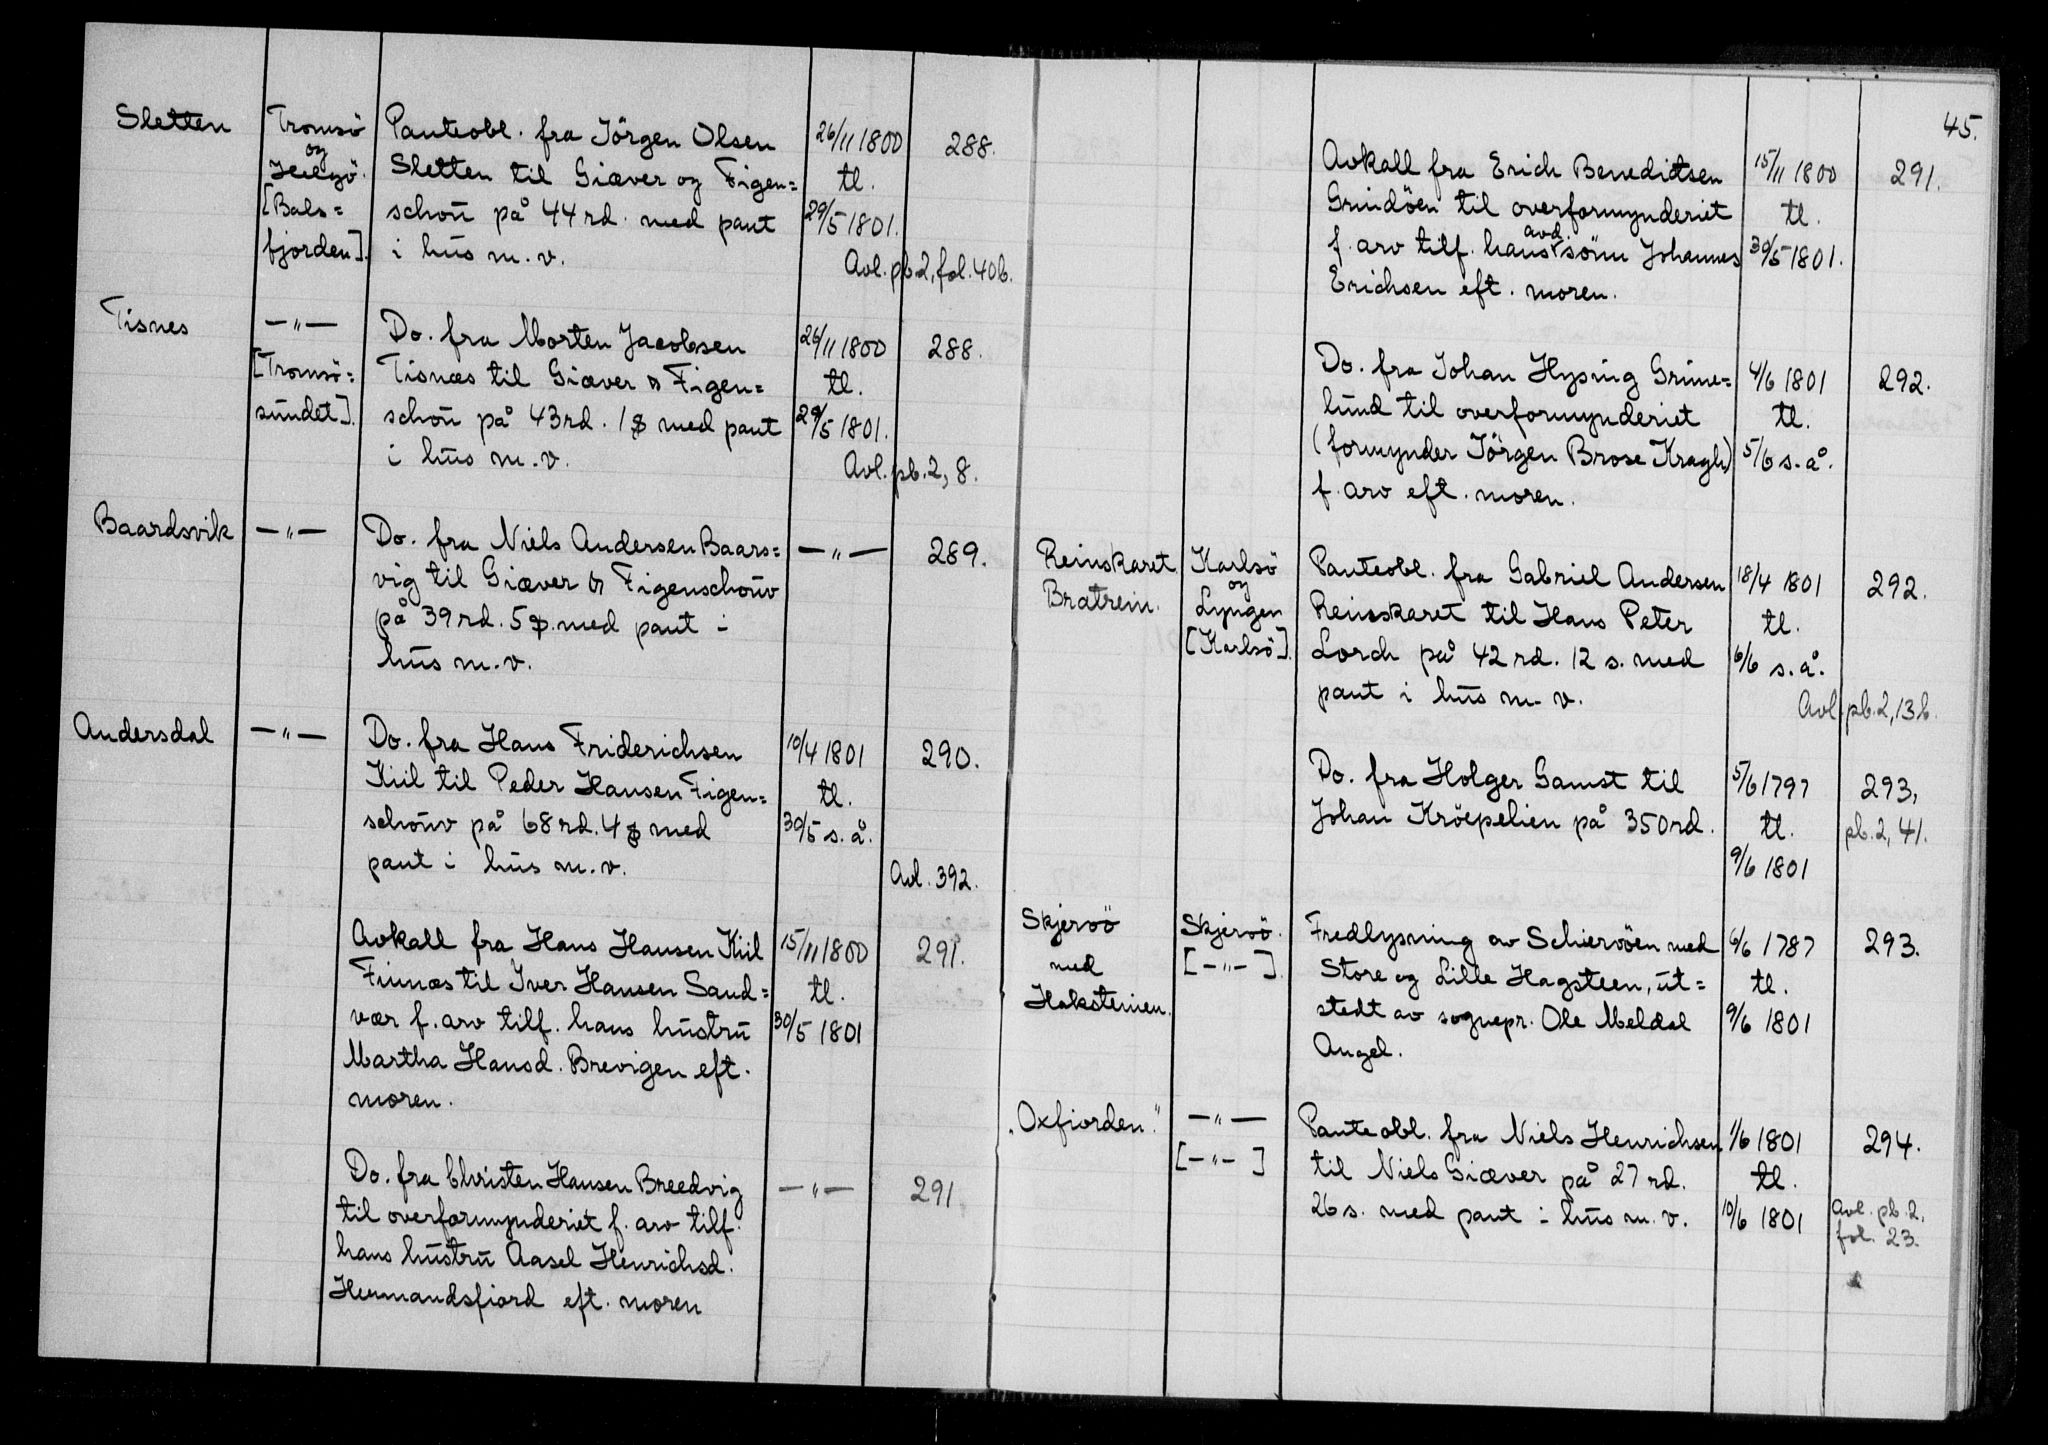 Sletten
Tromsö
og
Helgö.
[Bals=
fjorden].
Panteobl. fra Jörgen Olsen
Sletten til Giæver og Figen=
schou på 44 rd. med pant
i hus m.v.
26/11 1800
tl.
29/5 1801.
288.
Avl. pb.2, fol. 40b.
Tisnes
—"—
[Tromsö=
sundet].
Do. fra Morten Jacobsen
Tisnæs til Giæver & Figen=
schou på 43 rd. 1 $ med pant
i hus m.v.
26/11 1800
tl.
29/5 1801.
288.
Avl. pb.2, 8.
Baardsvik
—"—
Do. fra Niels Andersen Baars=
vig til Giæver & Figenschouv
på 39 rd. 5 $. med pant i
hus m.v.
—"—
289.
Andersdal
—"—
Do. fra Hans Friderichsen
Kiil til Peder Hansen Figen=
schouv på 68 rd. 4 $ med
pant i hus m.v.
10/4 1801
tl.
30/5 s.å.
290.
Avl. 392.
Avkall fra Hans Hansen Kiil
Finnæs til Iver Hansen Sand=
vær f. arv tilf. hans hustru
Martha Hansd. Brevigen eft.
moren.
15/11 1800
tl.
30/5 1801
291.
Do. fra Christen Hansen Breedvig
til overformynderiet f. arv tilf.
hans hustru Aasel Henrichsd.
Hermandsfiord eft. moren
—"—
291.
45.
Avkall fra Erich Benedictsen
Grindöen til overformynderiet
f. arv tilf. hans avd. sönn Johannes
Erichsen eft. moren.
15/11 1800
tl.
30/5 1801.
291.
Do. fra Johan Hysing Grüne=
lund til overformynderiet
(formynder Jörgen Brose Kragh)
f. arv eft. moren.
4/6 1801
tl.
5/6 s.å.
292.
Reinskaret
Bratrein.
Karlsö
og
Lyngen
[Karlsö].
Panteobl. fra Gabriel Andersen
Reinskaret til Hans Peter
Lorch på 42 rd. 12 s. med
pant i hus m.v.
18/4 1801
tl.
6/6 s.å.
292.
Avl. pb.2, 13b.
Do. fra Holger Gamst til
Johan Kröepelien på 350 rd.
5/6 1797
tl.
9/6 1801
293,
pb.2, 41.
Skjervö
med
Haksteinen.
Skjervö.
[—"—].
Fredlysning av Schiervöen med
Store og Lille Hagsteen, ut=
stedt av sognepr. Ole Meldal
Angel.
6/6 1787
tl.
9/6 1801
293.
"Oxfiorden."
—"—
[—"—]
Panteobl. fra Niels Henrichsen
til Niels Giæver på 27 rd.
26 s. med pant i hus m.v.
1/6 1801
tl.
10/6 1801
294.
Avl. pb.2,
fol. 23.